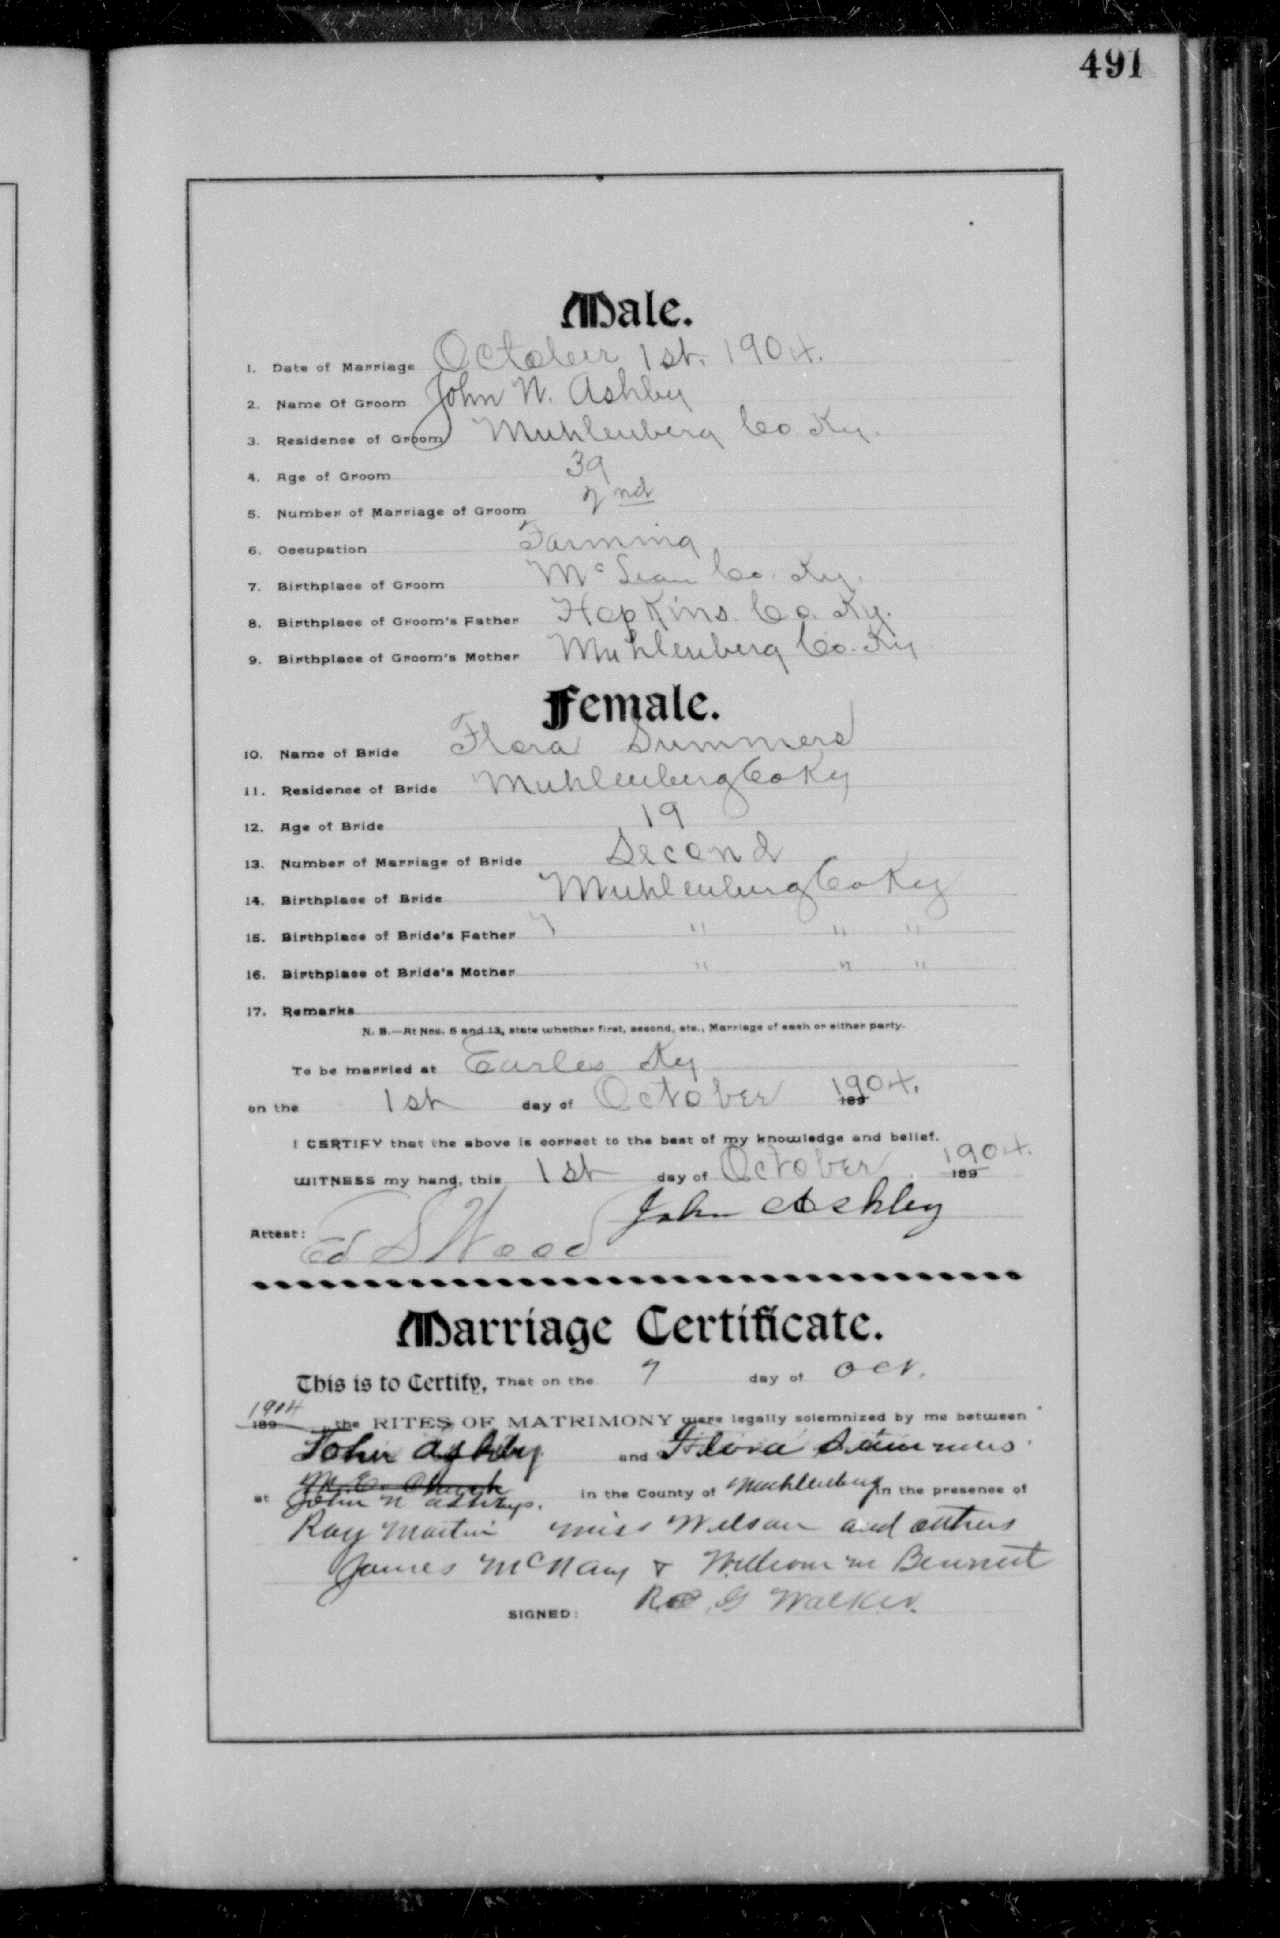 491
Male.
1. Date of Marriage October 1st. 1904.
2. Name Of Groom John N. Ashby
3. Residence of Groom Muhlenberg Co. Ky.
4. Age of Groom 39
5. Number of Marriage of Groom 2nd
6. Occupation Farming
7. Birthplace of Groom McLean Co. Ky.
8. Birthplace of Groom's Father Hopkins. Co. Ky.
9. Birthplace of Groom's Mother Muhlenberg Co. Ky
Female.
10. Name of Bride Flora Summers
11. Residence of Bride Muhlenberg Co Ky
12. Age of Bride 19
13. Number of Marriage of Bride Second
14. Birthplace of Bride Muhlenberg Co Ky
15. Birthplace of Bride's Father " " " "
16. Birthplace of Bride's Mother " " "
17. Remarks
N. B.—At Nos. 5 and 13, state whether first, second, etc., Marriage of each or either party.
To be married at Earles Ky
on the 1st day of October 189 1904.
I CERTIFY that the above is correct to the best of my knowledge and belief.
WITNESS my hand, this 1st day of October 189 1904.
John Ashby
Attest: Ed S Wood
Marriage Certificate.
This is to Certify, That on the 7 day of Oct.
1904 189 the RITES OF MATRIMONY were legally solemnized by me between
John Ashby and Flora Summers
M. E. Church
at John N Ashbys. in the County of Muhlenberg in the presence of
Ray Martin Miss Wilson and others
James McNary & William M Bennett
SIGNED: G Walker.